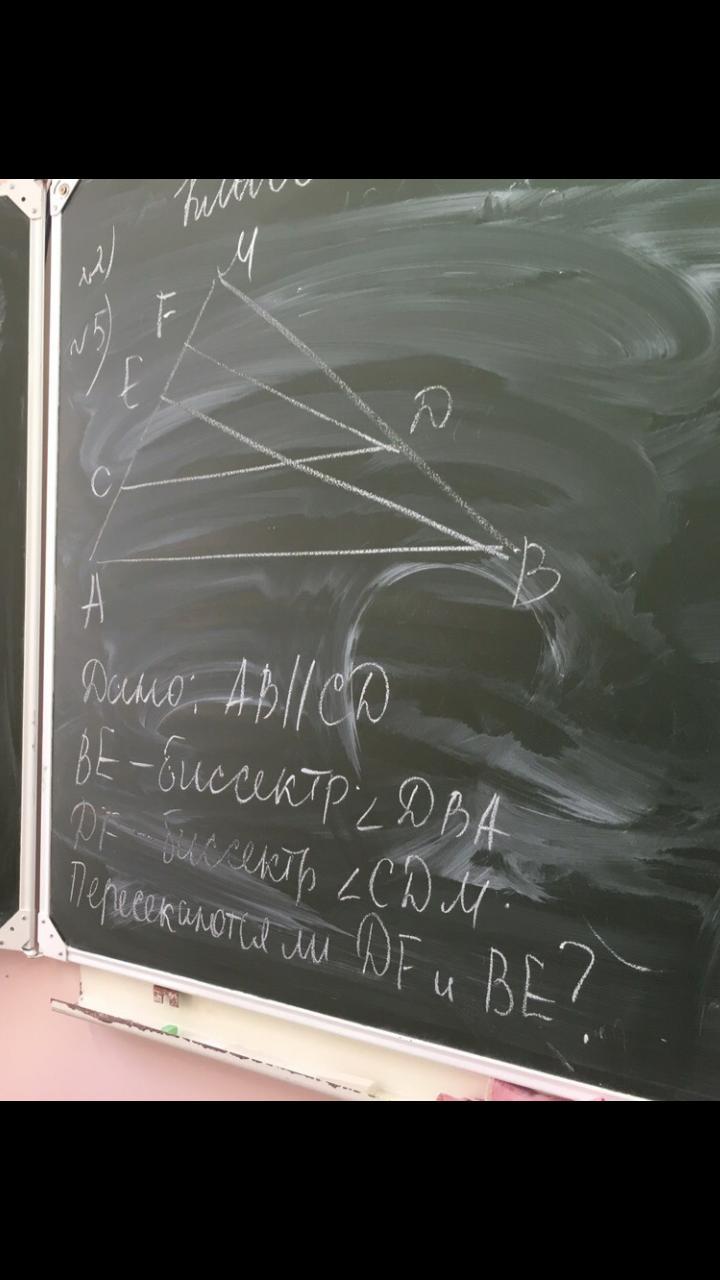 №2)
№5)
M
F
E
D
C
A
B
Дано: AB||CD
BE – биссектр. ∠DBA
DF – биссектр ∠CDM.
Пересекаются ли DF и BE?